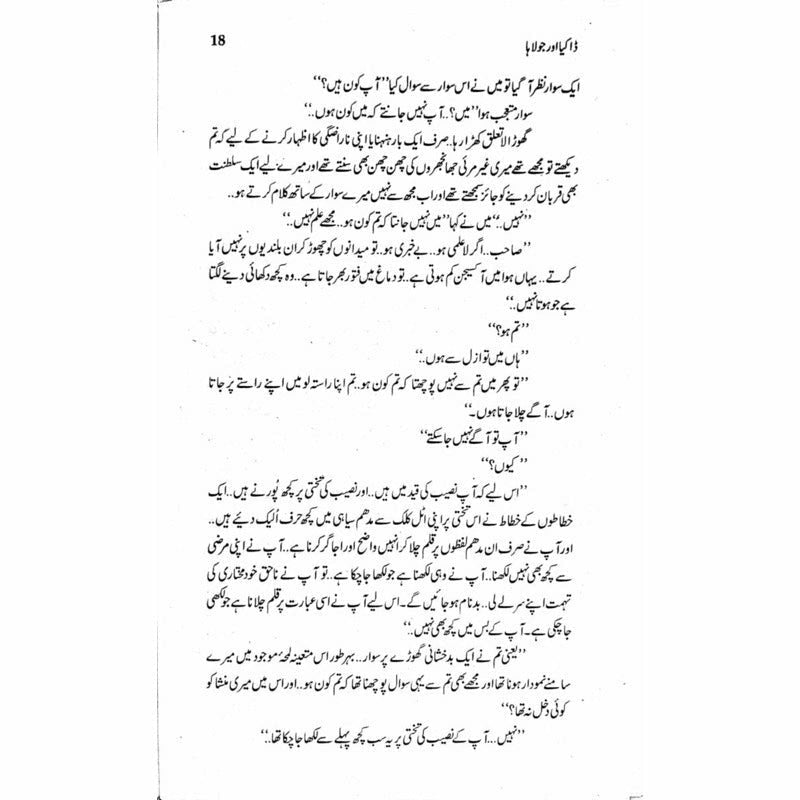 ڈاکیا اور جولاہا
18
ایک سوار نظر آ گیا تو میں نے اس سوار سے سوال کیا ’’آپ کون ہیں؟‘‘
سوار متعجب ہوا ’’میں؟.. آپ نہیں جانتے کہ میں کون ہوں..‘‘
گھوڑا لاتعلق کھڑا رہا.. صرف ایک بار ہنہنایا اپنی ناراضگی کا اظہار کرنے کے لیے کہ تم
دیکھتے تو مجھے تھے میری غیر مرئی جھانجھروں کی چھن چھن بھی سنتے تھے اور میرے لیے ایک سلطنت
بھی قربان کر دینے کو جائز سمجھتے تھے اور اب مجھ سے نہیں میرے سوار کے ساتھ کلام کرتے ہو..
’’نہیں..‘‘ میں نے کہا ’’میں نہیں جانتا کہ تم کون ہو.. مجھے علم نہیں..‘‘
’’صاحب.. اگر لاعلمی ہو.. بے خبری ہو.. تو میدانوں کو چھوڑ کر ان بلندیوں پر نہیں آیا
کرتے.. یہاں ہوا میں آکسیجن کم ہوتی ہے.. تو دماغ میں فتور بھر جاتا ہے.. وہ کچھ دکھائی دینے لگتا
ہے جو ہوتا نہیں..‘‘
’’تم ہو؟‘‘
’’ہاں میں تو ازل سے ہوں..‘‘
’’تو پھر میں تم سے نہیں پوچھتا کہ تم کون ہو.. تم اپنا راستہ لو میں اپنے راستے پر جاتا
ہوں.. آگے چلا جاتا ہوں۔‘‘
’’آپ تو آگے نہیں جا سکتے‘‘
’’کیوں؟‘‘
’’اس لیے کہ آپ نصیب کی قید میں ہیں.. اور نصیب کی تختی پر کچھ پُورنے ہیں.. ایک
خطاطوں کے خطاط نے اس تختی پر اپنی اٹل کلک سے مدھم سیاہی میں کچھ حرف اُلیک دیئے ہیں..
اور آپ نے صرف ان مدھم لفظوں پر قلم چلا کر انہیں واضح اور اجاگر کرنا ہے.. آپ نے اپنی مرضی
سے کچھ بھی نہیں لکھنا.. آپ نے وہی لکھنا ہے جو لکھا جا چکا ہے.. تو آپ نے ناحق خودمختاری کی
تہمت اپنے سر لے لی.. بدنام ہو جائیں گے۔ اس لیے آپ نے اسی عبارت پر قلم چلانا ہے جو لکھی
جا چکی ہے۔ آپ کے بس میں کچھ بھی نہیں..‘‘
’’یعنی تم نے ایک بدخشانی گھوڑے پر سوار.. بہرطور اس متعینہ لمحۂ موجود میں میرے
سامنے نمودار ہونا تھا اور مجھے بھی تم سے یہی سوال پوچھنا تھا کہ تم کون ہو.. اور اس میں میری منشا کو
کوئی دخل نہ تھا؟‘‘
’’نہیں... آپ کے نصیب کی تختی پر یہ سب کچھ پہلے سے لکھا جا چکا تھا..‘‘